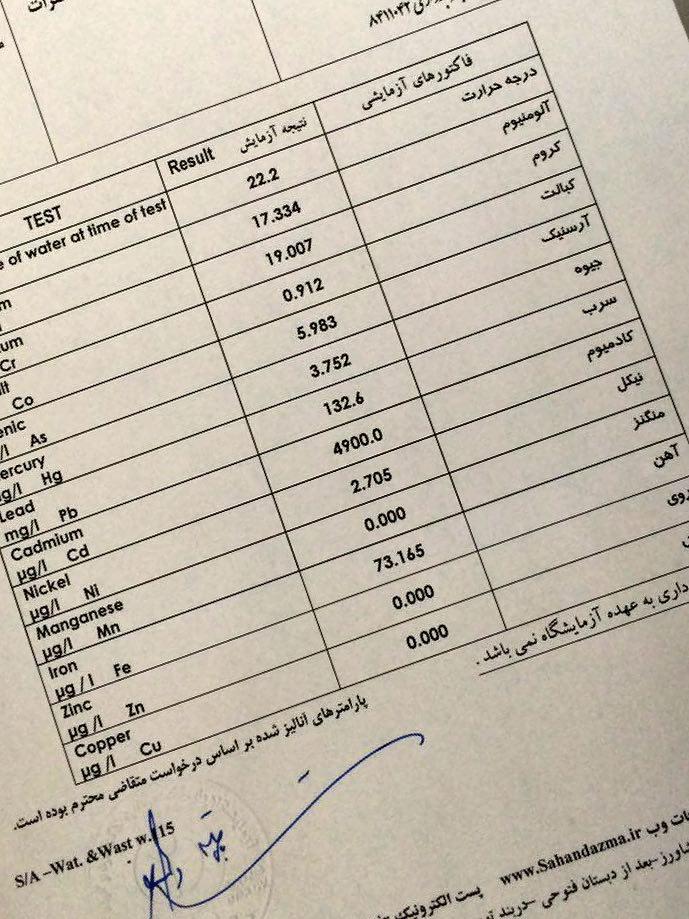 ۸۴۱۱۰۴۲
TEST
Result نتیجه آزمایش
فاکتورهای آزمایشی
of water at time of test
22.2
درجه حرارت
17.334
آلومنیوم
Cr
19.007
کروم
Co
0.912
کبالت
As
5.983
آرسنیک
Hg
3.752
جیوه
Lead
mg/l Pb
132.6
سرب
Cadmium
µg/l Cd
4900.0
کادمیوم
Nickel
µg/l Ni
2.705
نیکل
Manganese
µg/l Mn
0.000
منگنز
Iron
µg / l Fe
73.165
آهن
Zinc
µg /l Zn
0.000
Copper
µg /l Cu
0.000
داری به عهده آزمایشگاه نمی باشد .
پارامترهای آنالیز شده بر اساس درخواست متقاضی محترم بوده است.
S/A –Wat. &Wast w. 15
وب www.Sahandazma.ir پست الکترونیک
بعد از دبستان فتوحی –دربند